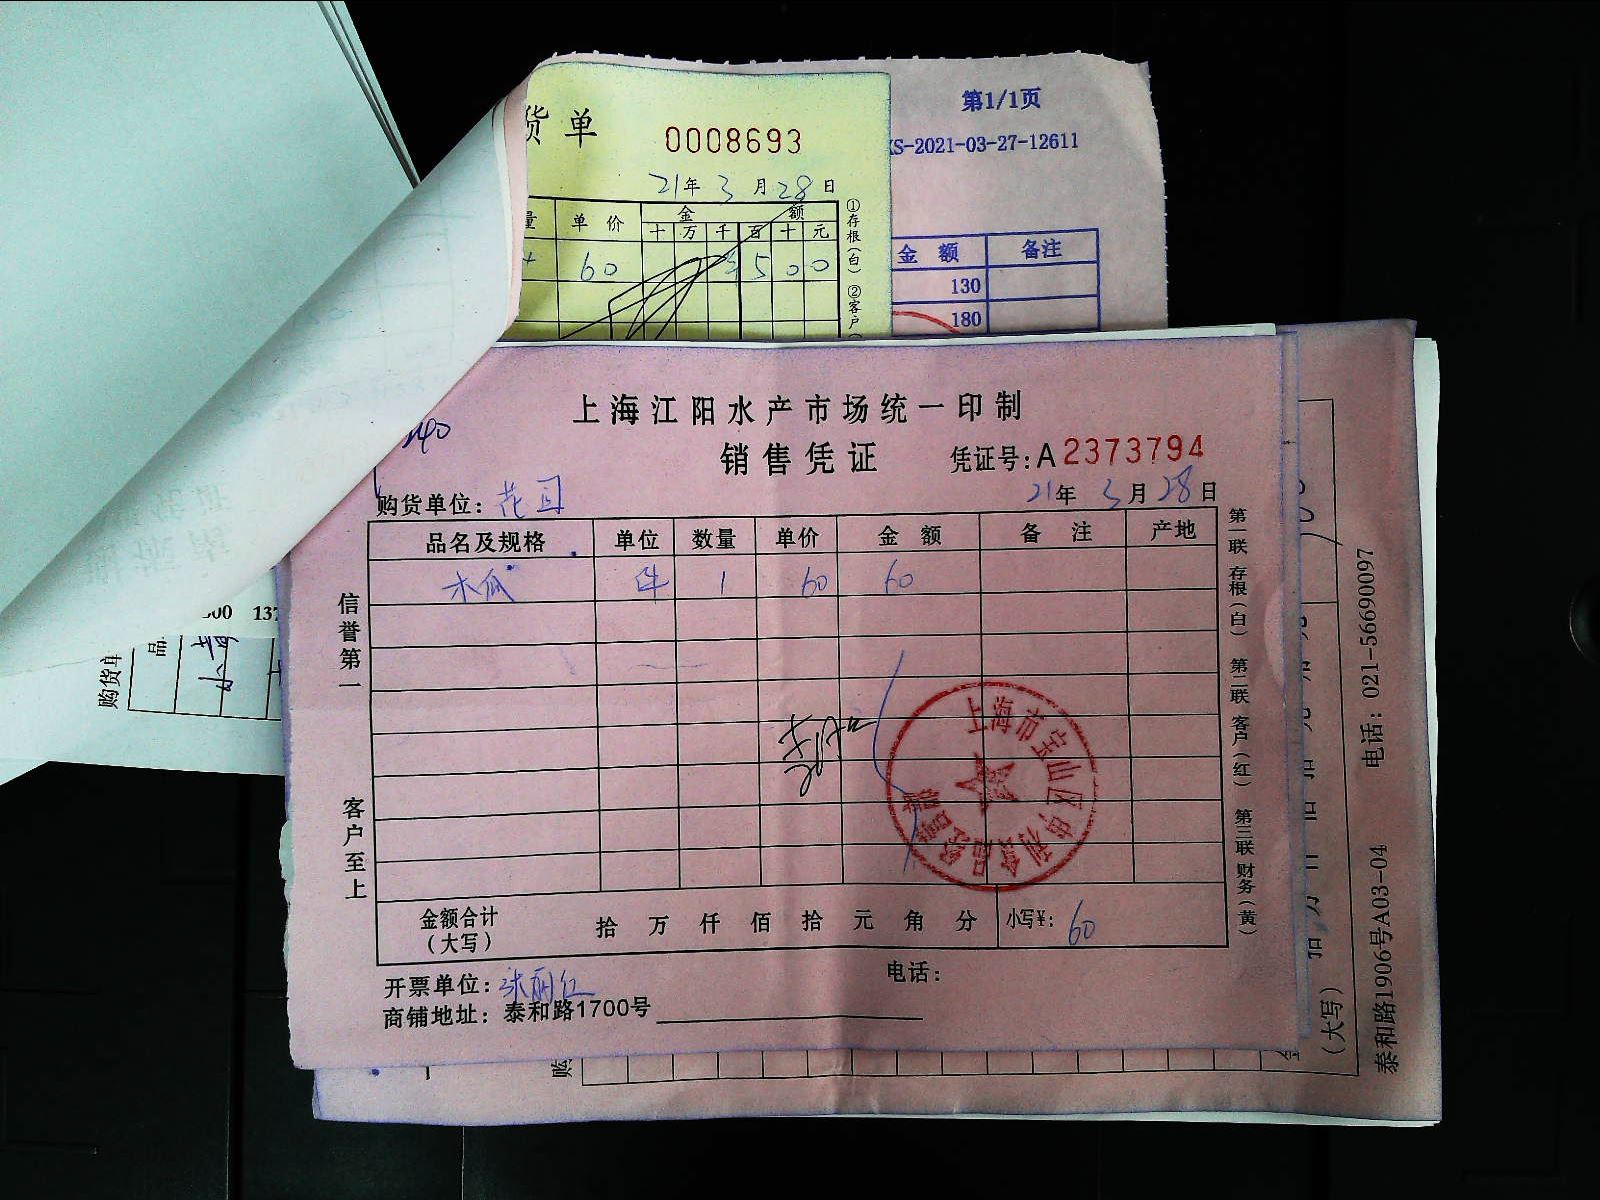 货单 0008693
21年3月28日
量 单价 金额
十 万 千 百 十 元
60 500
①存根(白) ②客户
第1/1页
KS-2021-03-27-12611
金额 备注
130
180
上海江阳水产市场统一印制
销售凭证 凭证号:A2373794
购货单位: 21年3月28日
品名及规格 单位 数量 单价 金额 备注 产地
木瓜 件 1 60 60
信誉第一
客户至上
第一联 存根(白) 第二联 客户(红) 第三联 财务(黄)
上海市宝山区申利食品经营部
金额合计(大写) 拾 万 仟 佰 拾 元 角 分 小写¥: 60
开票单位:张丽红 电话:
商铺地址:泰和路1700号
购货单
品
(大写)
泰和路1906号A03-04 电话:021-56690097